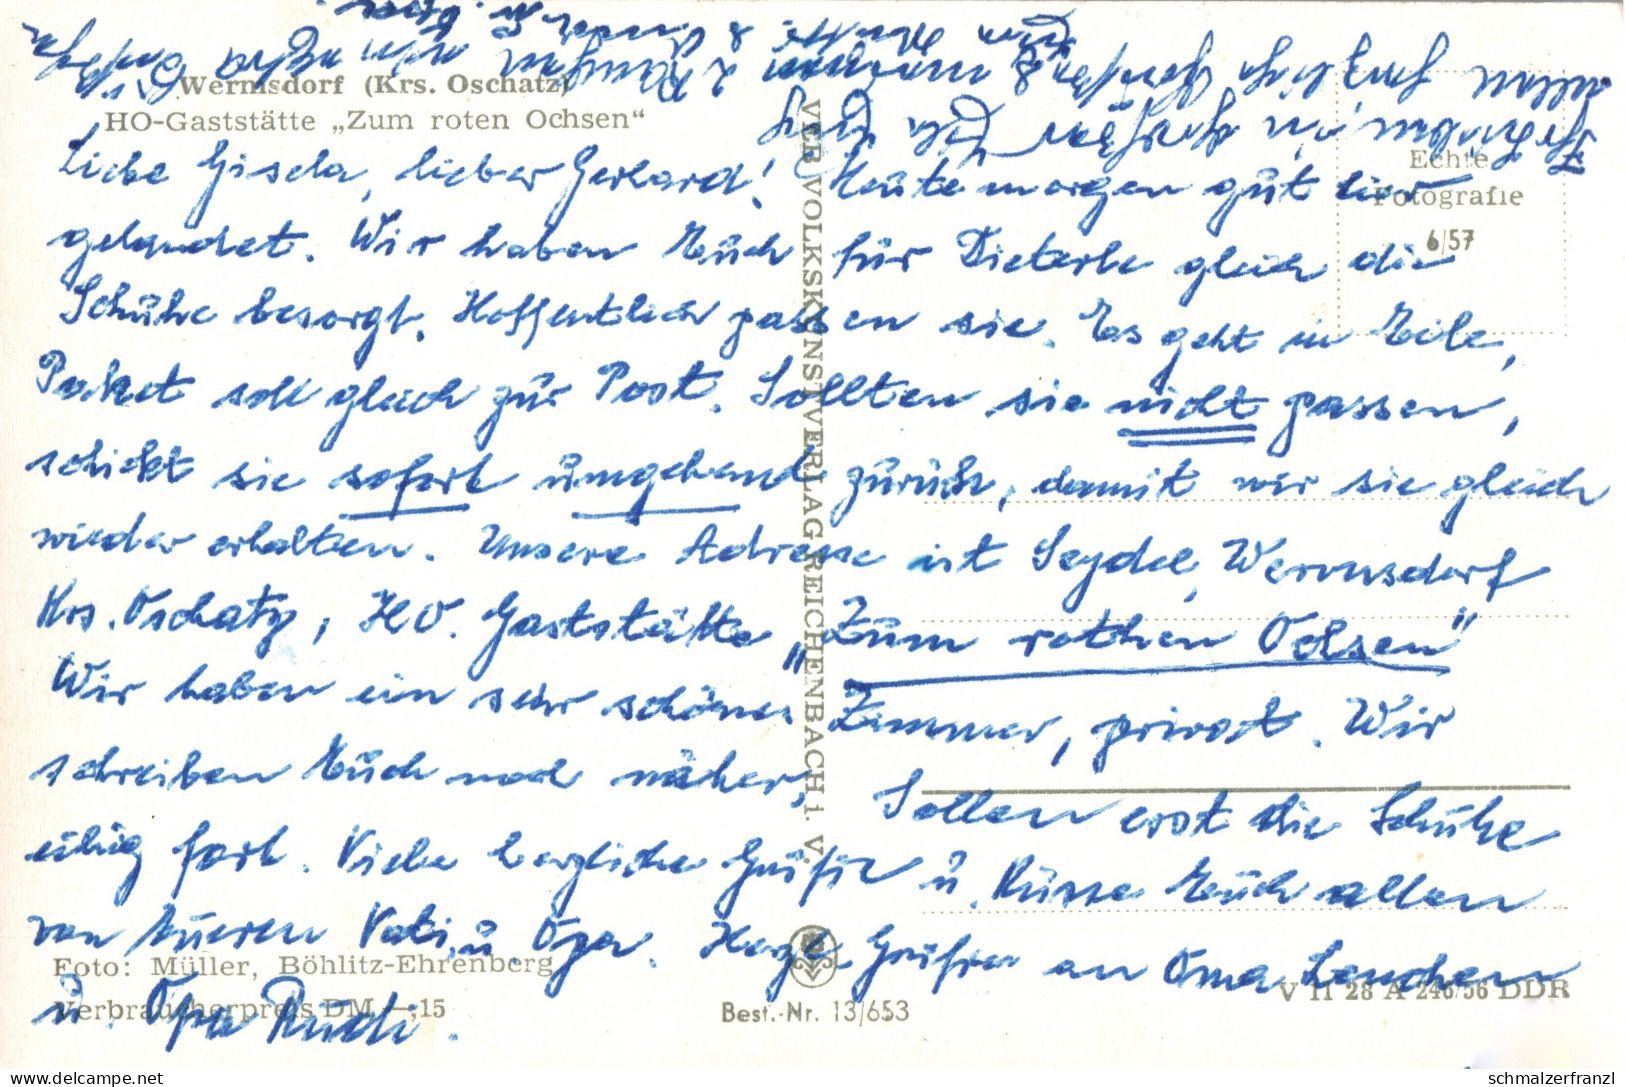 Wermsdorf (Krs. Oschatz)
HO-Gaststätte „Zum roten Ochsen“
Echte
Fotografie
6/57
Liebe Gisela, lieber Gerhard! Heute morgen gut hier
gelandet. Wir haben Euch für Dieterle gleich die
Schuhe besorgt. Hoffentlich passen sie. Es geht in Eile,
Paket soll gleich zur Post. Sollten sie nicht passen,
schickt sie sofort umgehend zurück, damit wir sie gleich
wieder erhalten. Unsere Adresse ist Seydel, Wermsdorf
Krs. Oschatz, HO. Gaststätte „Zum rothen Ochsen“
Wir haben ein sehr schönes Zimmer, privat. Wir
schreiben Euch noch näher, Sollen erst die Schuhe
eilig fort. Viele herzliche Grüße u. Küsse Euch allen
von Eueren Vati u. Opa. Herzl. Grüße an Oma
u. Opa Rudi.
VEB VOLKSKUNSTVERLAG REICHENBACH i. V.
Foto: Müller, Böhlitz-Ehrenberg
Verbraucherpreis DM —,15
Best.-Nr. 13/653
V 11 28 A 246/56 DDR
delcampe.net
schmalzerfranzl